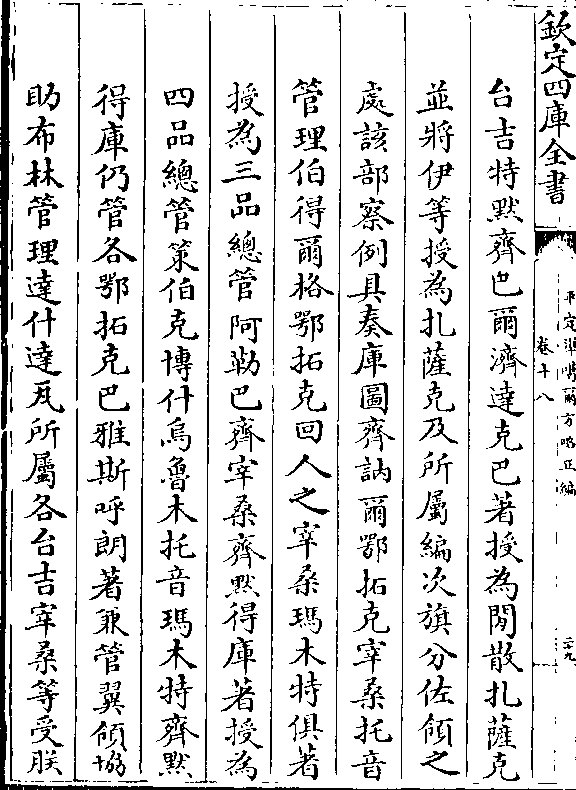 欽定四庫全書
平定準噶爾方略正編
卷十八
二十九
台吉特默齊巴爾濟達克巴著授為閒散扎薩克
並將伊等授為扎薩克及所屬編次旗分佐領之
處該部察例具奏庫圖齊訥爾鄂拓克宰桑托音
管理伯得爾格鄂拓克回人之宰桑瑪木特俱著
授為三品總管阿勒巴齊宰桑齊默得庫著授為
四品總管策伯克博什烏魯木托音瑪木特齊默
得庫仍管各鄂拓克巴雅斯呼朗著兼管翼領協
助布林管理達什達瓦所屬各台吉宰桑等受朕